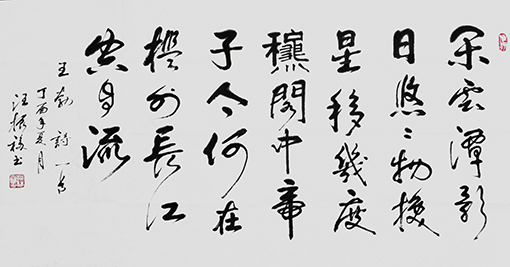 閒雲潭影
日悠々物換
星移幾度
龝閣中帝
子今何在
檻外長江
空自流
王勃詩一首
丁酉年夏月
汪振书